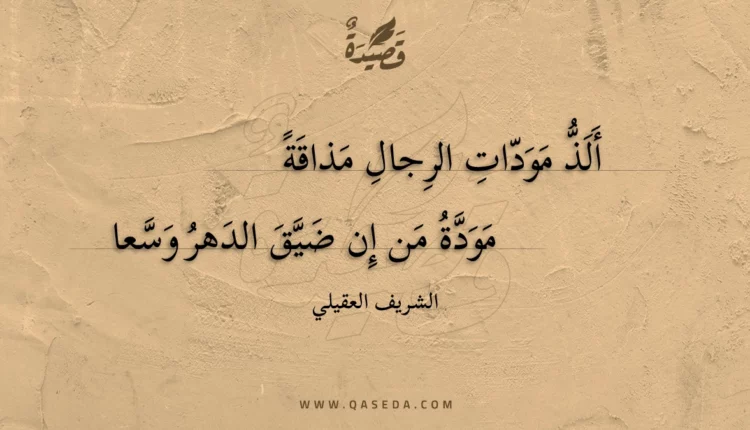 قَصِيدَةٌ
أَلَذُّ مَوَدّاتِ الرِجالِ مَذاقَةً
مَوَدَّةُ مَن إِن ضَيَّقَ الدَهرُ وَسَّعا
الشريف العقيلي
WWW.QASEDA.COM